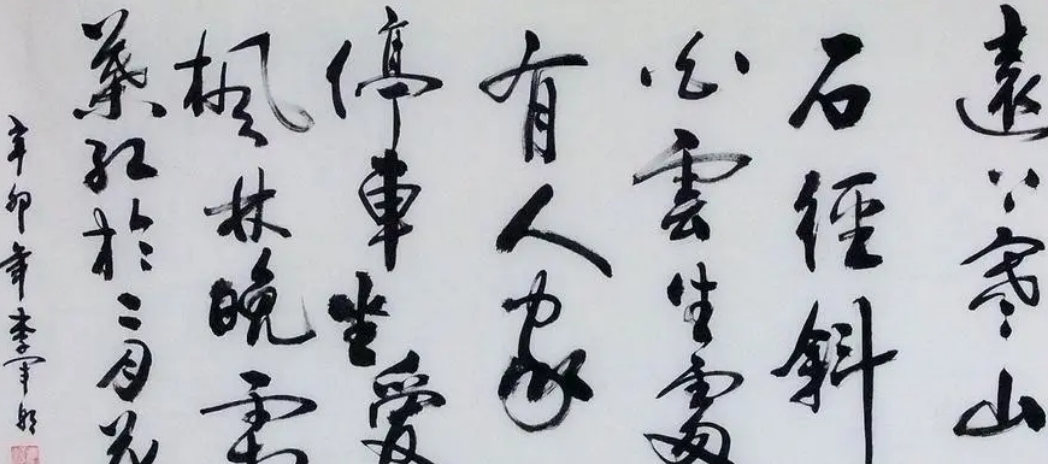 遠上寒山
石徑斜
白雲生處
有人家
停車坐愛
楓林晚霜
葉紅於二月花
辛卯年李軍